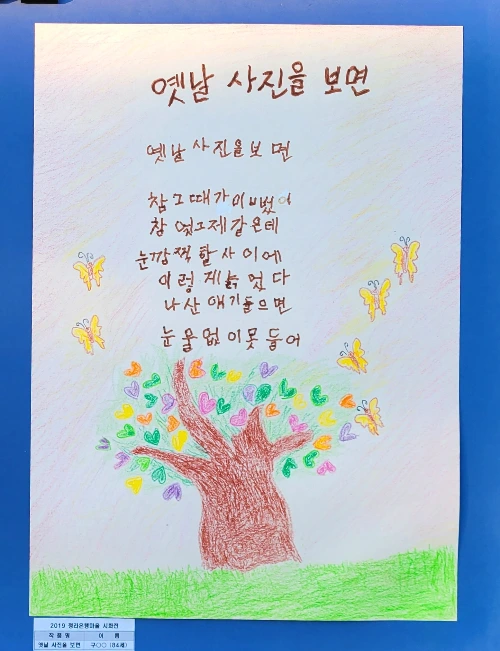 옛날 사진을 보면
옛날 사진을 보 면
참 그 때가 이뻤어
참 엊그제 같은데
눈깜짝 할 사 이에
이렇게 늙었다
나 산 얘기 들으면
눈물 없 이 못 들어
2019 정리은행마을 시화전
작 품 명 이 름
옛날 사진을 보면 구○○ (84세)